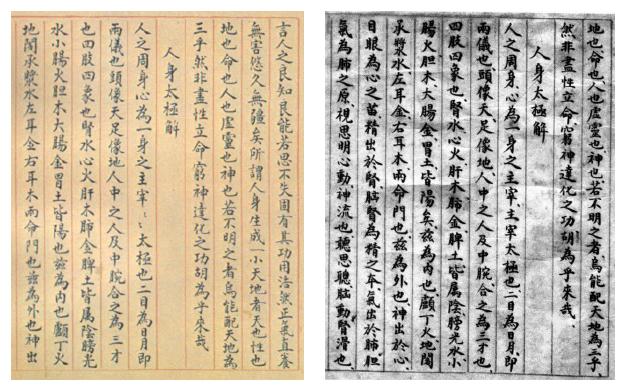 言人之良知良能若思不失固有其功用浩然正氣直養
無害悠久無疆矣所謂人身生成一小天地者天也性也
地也命也人也虛靈也神也若不明之者烏能配天地為
三乎然非盡性立命窮神達化之功胡為乎來哉
人身太極解
人之周身心為一身之主宰:、:、太極也二目為日月即
兩儀也頭像天足像地人中之人及中脘合之為三才
也四肢四象也腎水心火肝木肺金脾土皆属陰膀光
水小腸火胆木大腸金胃土皆陽也兹為內也顱丁火
地閣承漿水左耳金右耳木兩命門也兹為外也神出
地也、命也、人也、虛靈也、神也、若不明之者、烏能配天地為三乎、
然非盡性立命、窮神達化之功、胡為乎來哉、
人身太極解
人之周身、心為一身之主宰、主宰太極也、二目為日月、即
兩儀也、頭像天、足像地、人中之人及中脘、合之為三才也、
四肢四象也、腎水、心火、肝木、肺金、脾土皆属陰、膀光水、小
腸火、胆木、大腸金、胃土、皆陽矣、兹為內也、顱丁火、地閣
承漿水、左耳金、右耳木、兩命門也、兹為外也、神出於心、
目眼為心之苗、精出於腎、腦腎為精之本、氣出於肺、胆
氣為肺之原、視思明、心動神流也、聽思聰、腦動腎滑也、